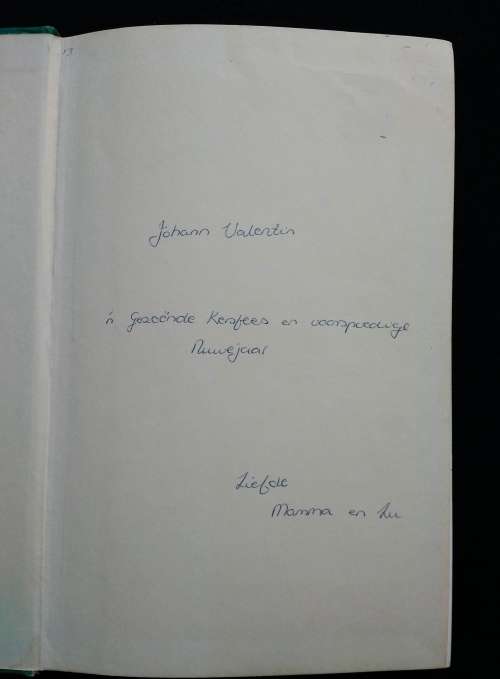 Johann Valentin
'n Geseënde Kersfees en voorspoedige
Nuwejaar
Liefde
Mamma en Lu